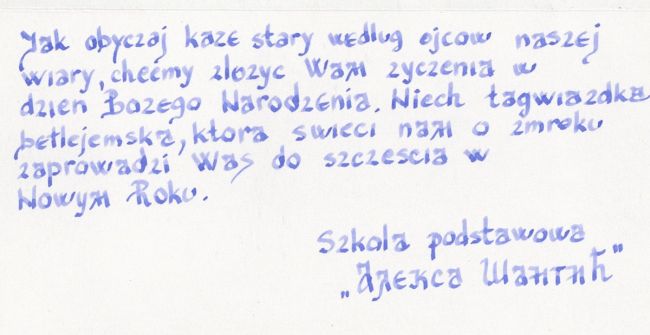 Jak obyczaj kaze stary według ojcow naszej
wiary, chcemy zlozyc Wam zyczenia w
dzien Bozego Narodzenia. Niech tagwiazdka
betlejemska, ktora swieci nam o zmroku
zaprowadzi Was do szczescia w
Nowym Roku.
Szkola podstawowa
„Алекса Шантић"